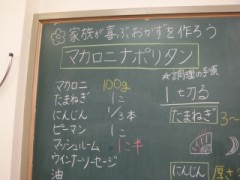 家族が喜ぶおかずを作ろう
マカロニナポリタン
マカロニ 100g
たまねぎ 1こ
にんじん 1/3本
ピーマン 1こ
マッシュルーム 1こ半
ウインナーソーセージ
油
★調理の手順
1 切る
たまねぎ 3〜
にんじん 厚さ